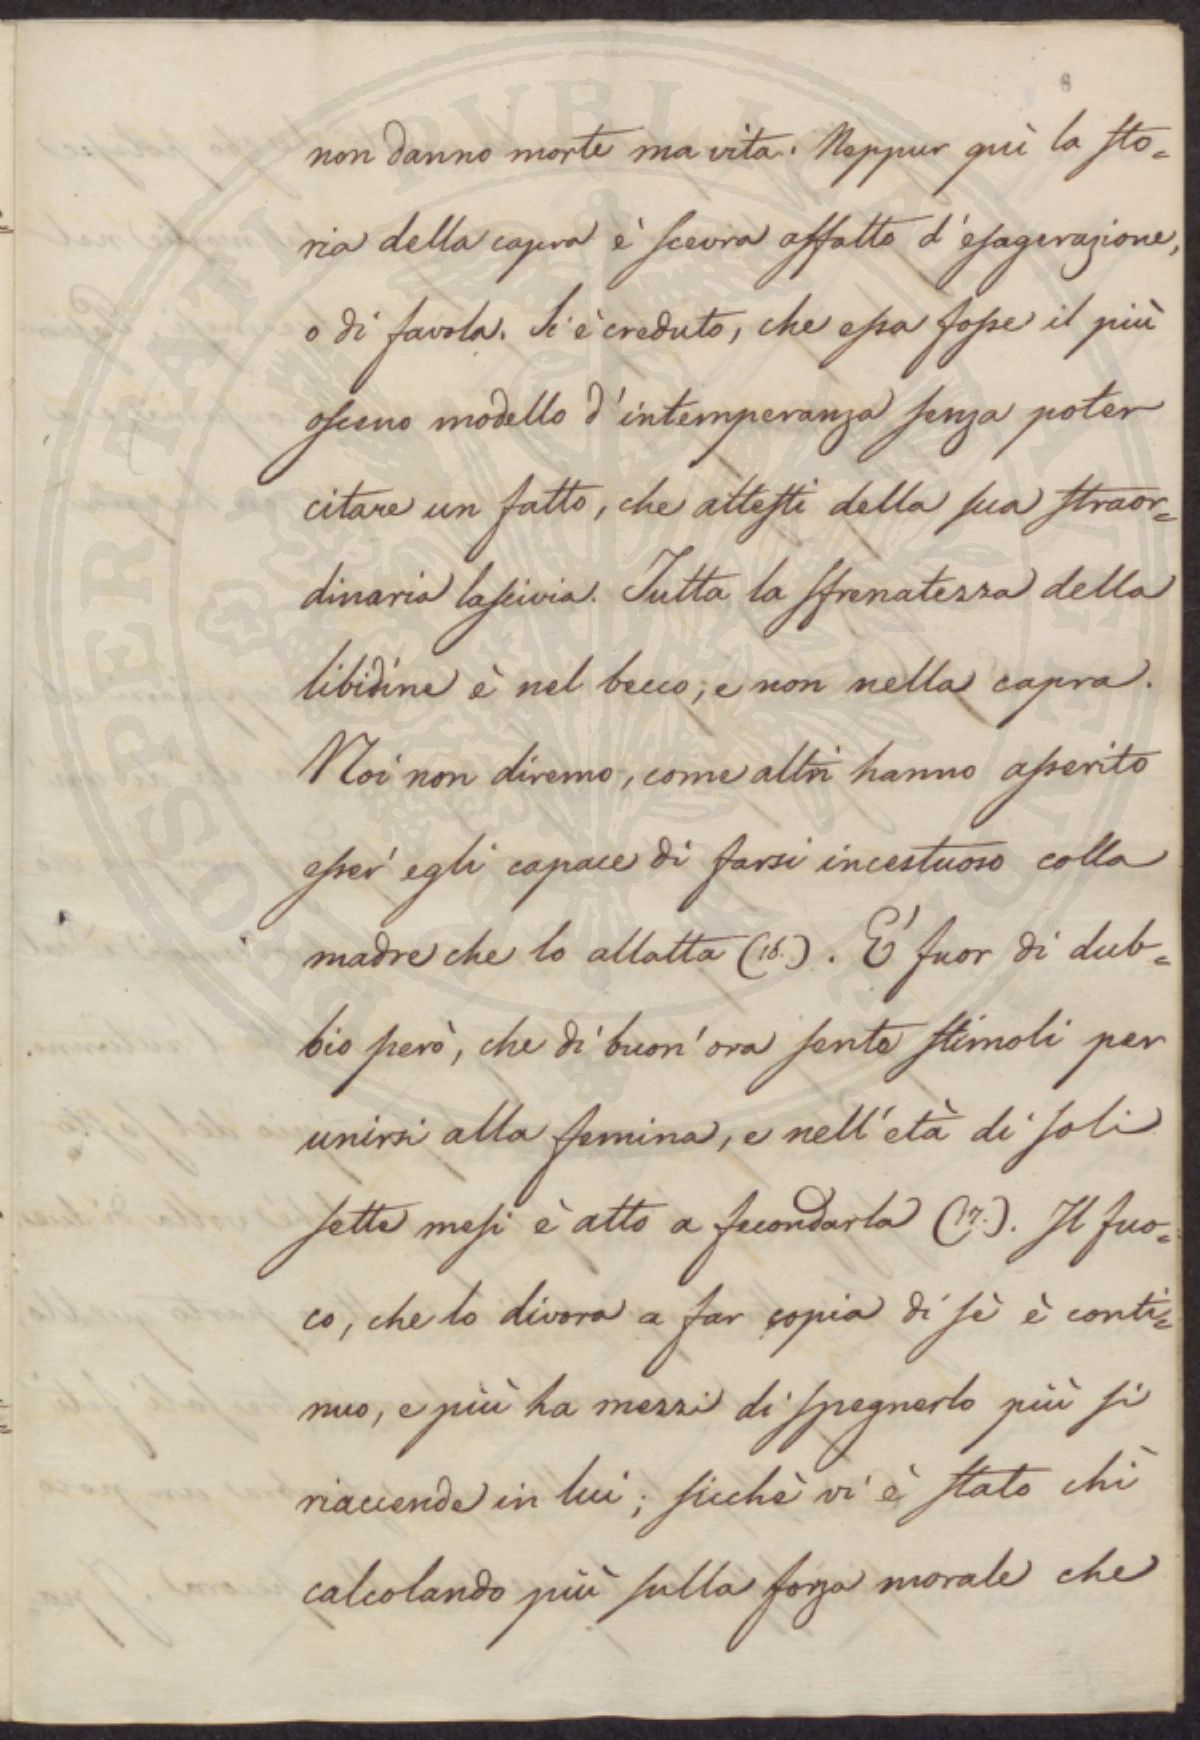 8
non danno morte ma vita. Neppur quì la sto=
ria della capra è scevra affatto d'esagerazione,
o di favola. Si è creduto, che essa fosse il più
osceno modello d'intemperanza senza poter
citare un fatto, che attesti della sua straor=
dinaria lascivia. Tutta la sfrenatezza della
libidine è nel becco, e non nella capra.
Noi non diremo, come altri hanno asserito
esser' egli capace di farsi incestuoso colla
madre che lo allatta (16.). E' fuor di dub=
bio però, che di buon'ora sente stimoli per
unirsi alla femina, e nell'età di soli
sette mesi è atto a fecondarla (17.). Il fuo=
co, che lo divora a far copia di sè è conti=
nuo, e più ha mezzi di spegnerlo più si
riaccende in lui; sicchè vi è stato chi
calcolando più sulla forza morale che